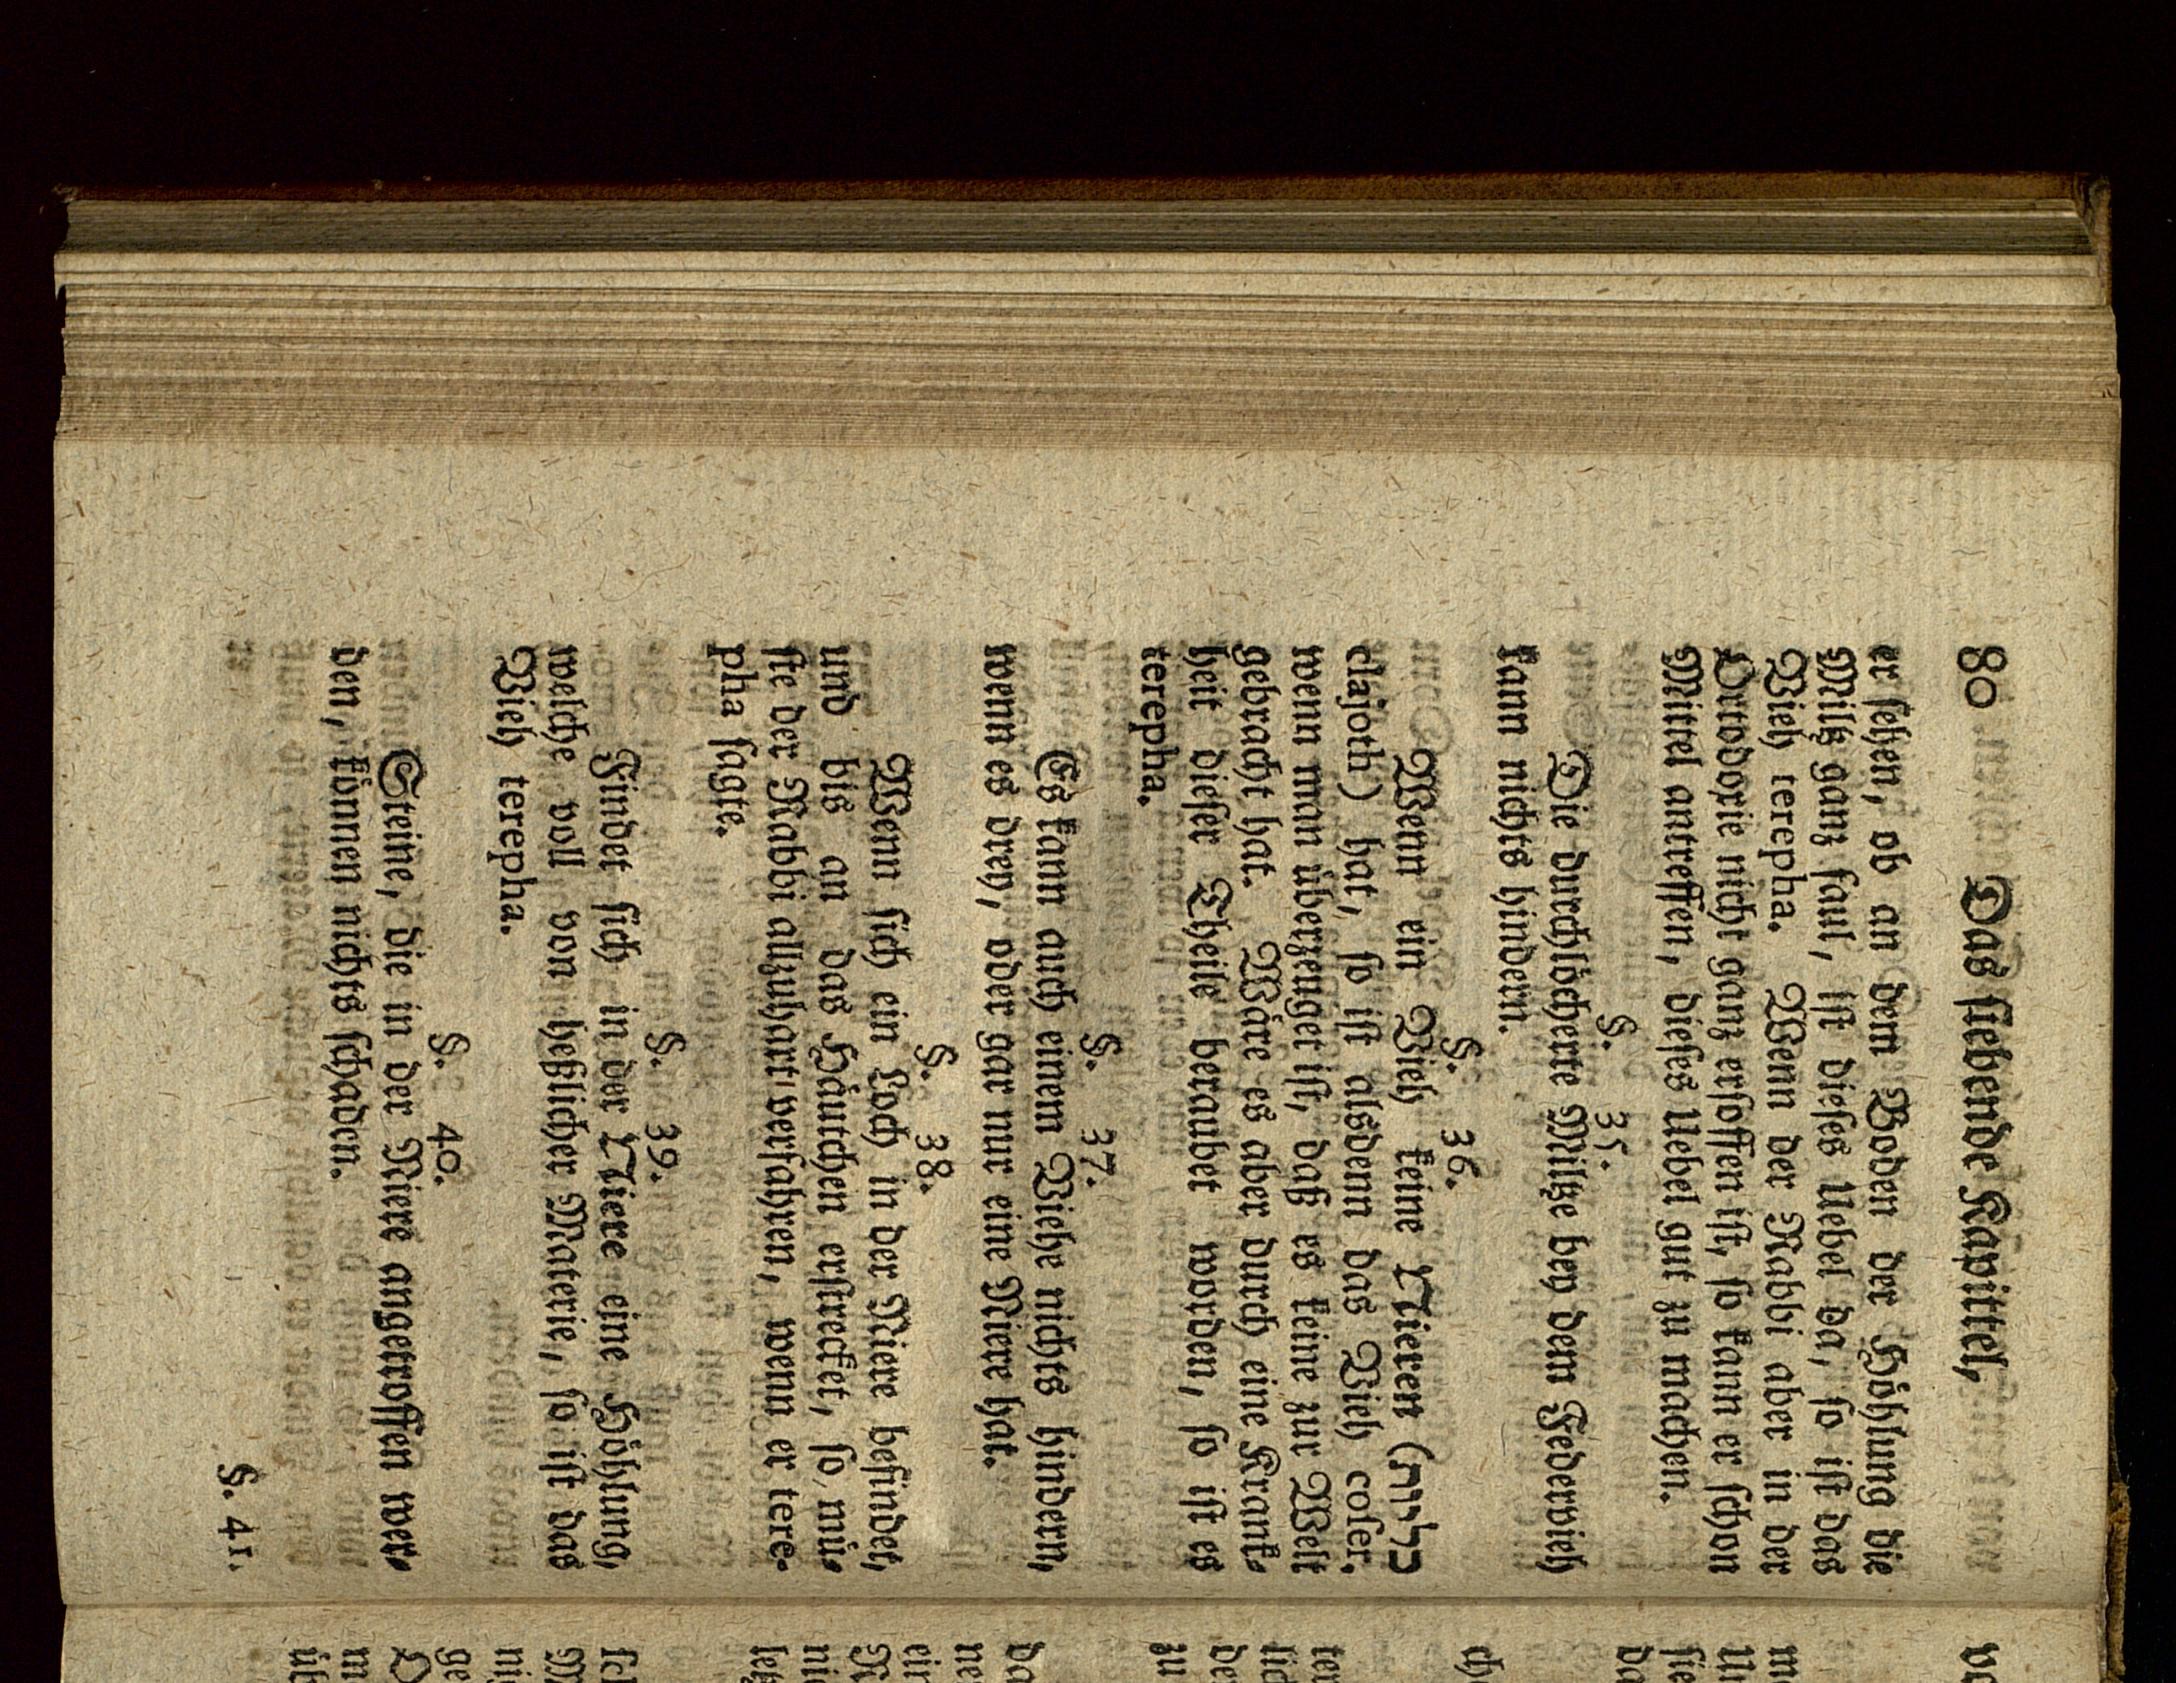 80 Das siebende Kapittel,
er sehen, ob an dem Boden der Höhlung die
Milz ganz faul, ist dieses Uebel da, so ist das
Vieh terepha. Wenn der Rabbi aber in der
Ortodoxie nicht ganz ersoffen ist, so kann er schon
Mittel antreffen, dieses Uebel gut zu machen.
§. 35.
Die durchlöcherte Milze bey dem Federvieh
kann nichts hindern.
§. 36.
Wenn ein Vieh keine Nieren (כליית
clajoth) hat, so ist alsdenn das Vieh coser,
wenn man überzeuget ist, daß es keine zur Welt
gebracht hat. Wäre es aber durch eine Krank-
heit dieser Theile beraubet worden, so ist es
terepha.
§. 37.
Es kann auch einem Viehe nichts hindern,
wenn es drey, oder gar nur eine Niere hat.
§. 38.
Wenn sich ein Loch in der Niere befindet,
und bis an das Häutchen erstrecket, so mü-
ste der Rabbi allzuhart verfahren, wenn er tere-
pha sagte.
§. 39.
Findet sich in der Niere eine Höhlung,
welche voll von heßlicher Materie, so ist das
Vieh terepha.
§. 40.
Steine, die in der Niere angetroffen wer-
den, können nichts schaden.
§. 41.